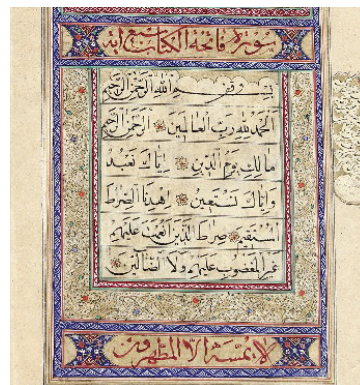 سورة فاتحة الكتاب سبع آية
بسم الله الرحمن الرحيم
الحمد لله رب العالمين الرحمن الرحيم
مالك يوم الدين إياك نعبد
وإياك نستعين اهدنا الصراط
المستقيم صراط الذين أنعمت عليهم
غير المغضوب عليهم ولا الضالين
لا يمسه إلا المطهرون